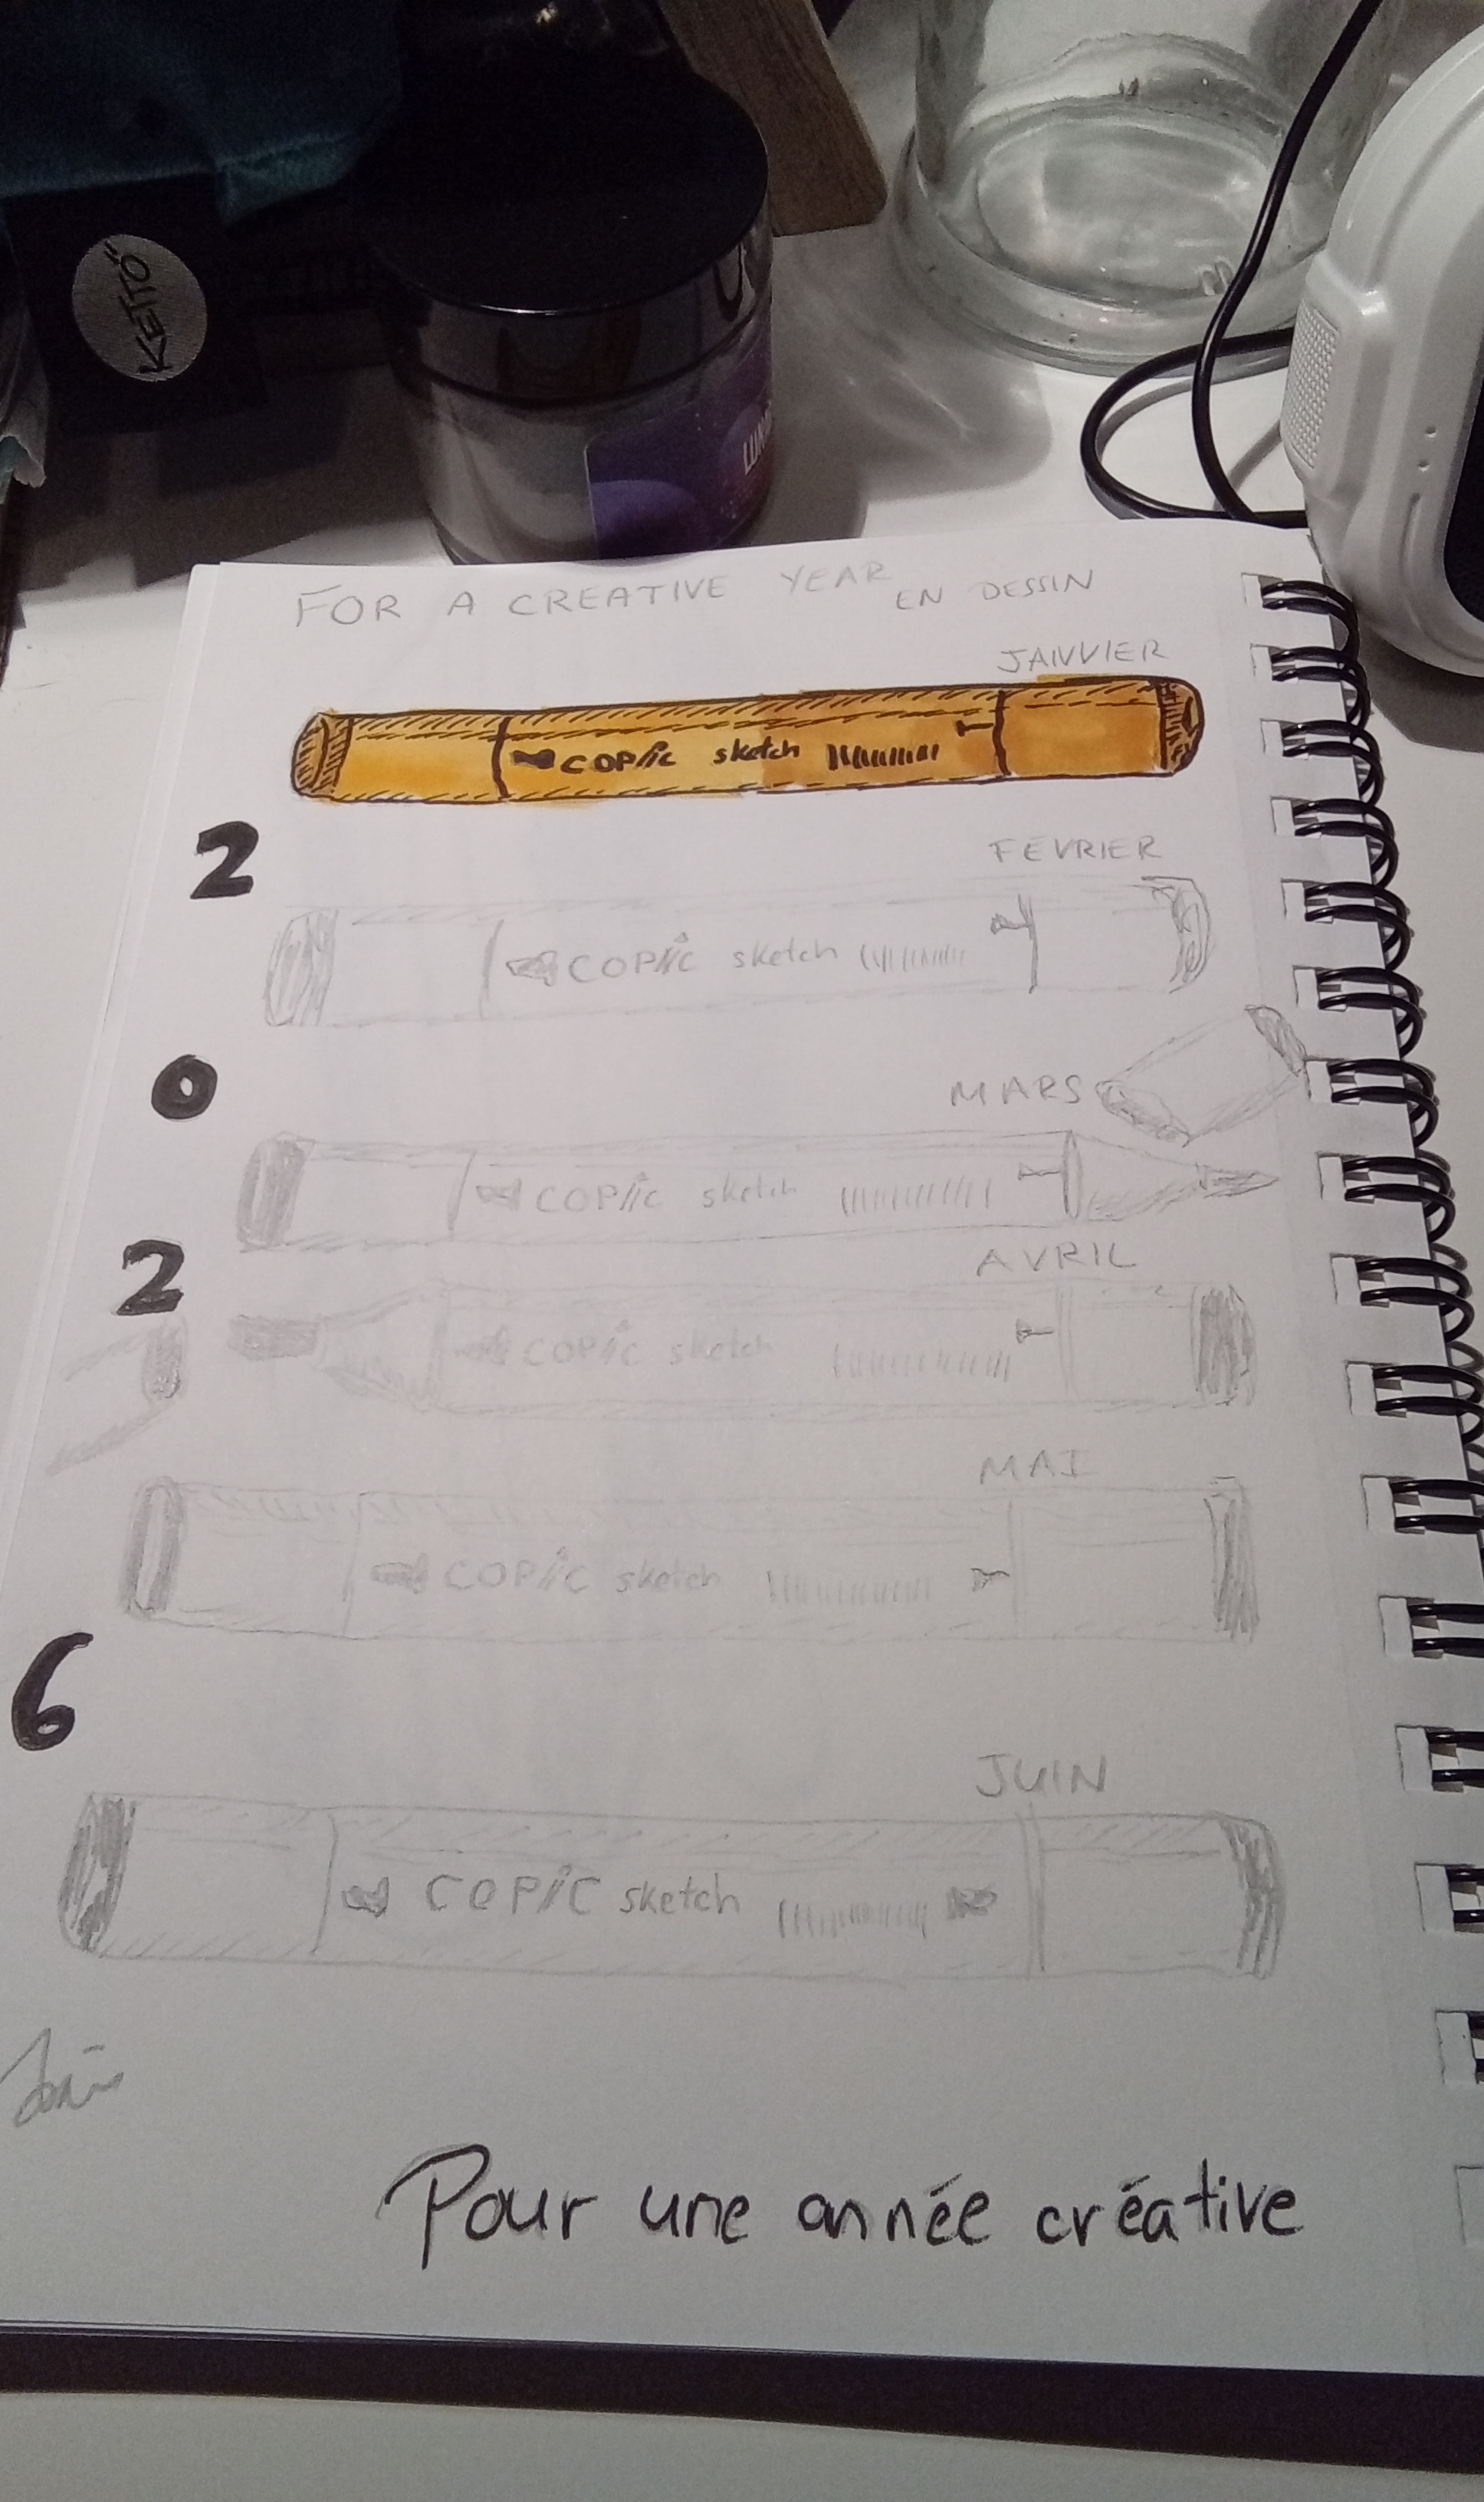 KETTŐ
FOR A CREATIVE YEAR
EN DESSIN
JANVIER
COPIC sketch
2
FÉVRIER
COPIC sketch
0
MARS
COPIC sketch
2
AVRIL
COPIC sketch
MAI
COPIC sketch
6
JUIN
COPIC sketch
Pour une année créative